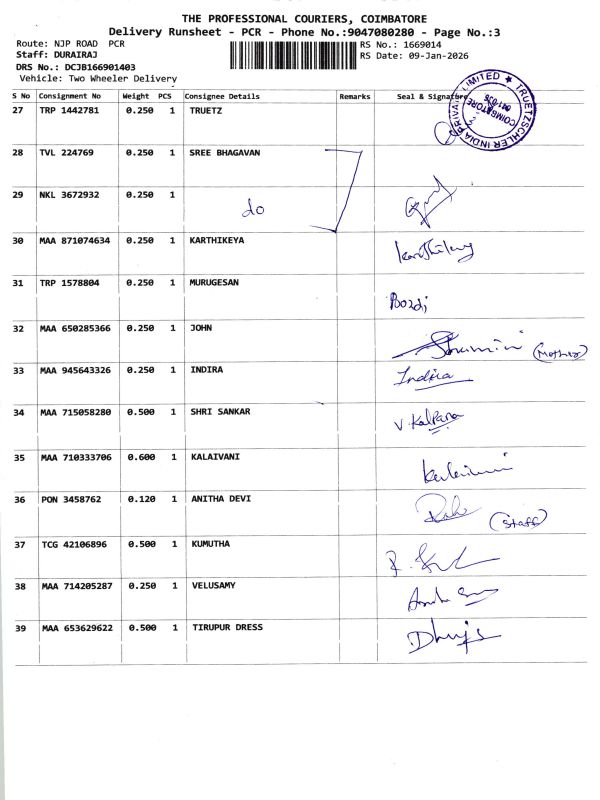 THE PROFESSIONAL COURIERS, COIMBATORE
Delivery Runsheet - PCR - Phone No.:9047080280 - Page No.:3
Route: NJP ROAD PCR
RS No.: 1669014
Staff: DURAIRAJ
RS Date: 09-Jan-2026
DRS No.: DCJB166901403
Vehicle: Two Wheeler Delivery
S No Consignment No Weight PCS Consignee Details Remarks Seal & Signature
27 TRP 1442781 0.250 1 TRUETZ
TRUETZSCHLER INDIA PRIVATE LIMITED ★
COIMBATORE
641 036
28 TVL 224769 0.250 1 SREE BHAGAVAN
29 NKL 3672932 0.250 1
do
30 MAA 871074634 0.250 1 KARTHIKEYA
31 TRP 1578804 0.250 1 MURUGESAN
32 MAA 650285366 0.250 1 JOHN
(Mother)
33 MAA 945643326 0.250 1 INDIRA
Indira
34 MAA 715058280 0.500 1 SHRI SANKAR
V. Kalpana
35 MAA 710333706 0.600 1 KALAIVANI
36 PON 3458762 0.120 1 ANITHA DEVI
(Staff)
37 TCG 42106896 0.500 1 KUMUTHA
38 MAA 714205287 0.250 1 VELUSAMY
39 MAA 653629622 0.500 1 TIRUPUR DRESS